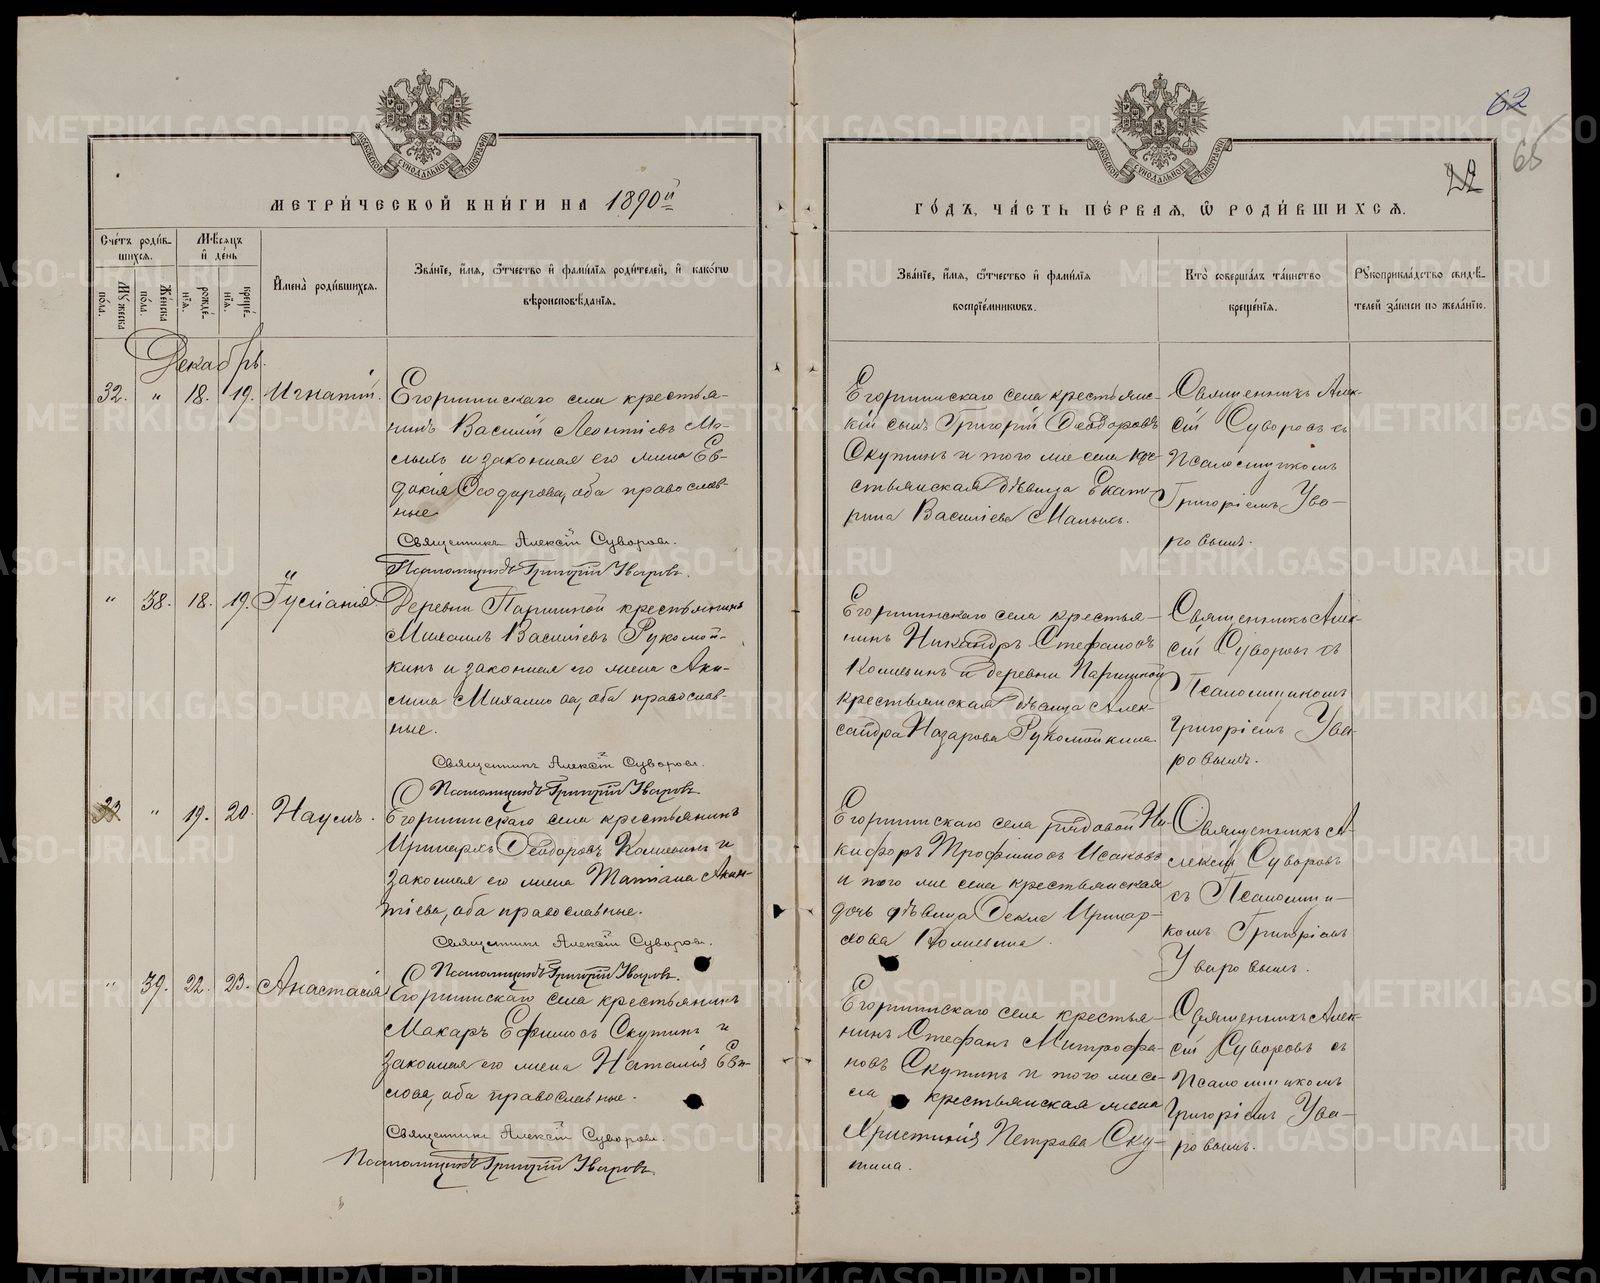 МЕТРИ́ЧЕСКОЙ КНИ́ГИ НА 1890й
Сче́тъ роди́в-
шихся.
Му́жеска
по́ла.
Же́нска
по́ла.
Мѣ́сяцъ
и де́нь
рожде́-
нія.
креще́-
нія.
Имена̀ роди́вшихся.
Зва́нїе, и́мя, ѻ҆́тчество и фами́лїя роди́телей, и како́гѡ
вѣроисповѣ́данїя.
Декабрь.
32. " 18. 19. Игнатій.
Егоршинскаго села крестья-
нинъ Василій Леонтіевъ Ма-
лыхъ и законная его жена Ев-
докія Ѳеодорова, оба православ-
ные.
Священникъ Алексій Суворовъ.
Псаломщикъ Григорій Уваровъ.
" 38. 18. 19. Іуліанія
Деревни Паршиной крестьянинъ
Михаилъ Васильевъ Рукомой-
кинъ и законная его жена Аки-
лина Михаилова, оба православ-
ные.
Священникъ Алексій Суворовъ.
Псаломщикъ Григорій Уваровъ
33 " 19. 20. Наумъ.
Егоршинскаго села крестьянинъ
Иринархъ Ѳеодоровъ Кошевинъ и
законная его жена Татіана Акин-
тіева, оба православные.
Священникъ Алексій Суворовъ.
Псаломщикъ Григорій Уваровъ.
" 39. 22. 23. Анастасія
Егоршинскаго села крестьянинъ
Макаръ Ефимовъ Скутинъ и
законная его жена Наталія
оба православные.
Священникъ Алексій Суворовъ.
Псаломщикъ Григорій Уваровъ.
62
65
22
ГО́ДЪ, ЧА́СТЬ ПЕ́РВАЯ, Ѽ РОДИ́ВШИХСЯ.
Зва́нїе, и́мя, ѻ҆́тчество и фами́лїя
воспрїе́мникѡвъ.
Кто̀ соверша́лъ та́инство
креще́нїя.
Рꙋкоприкла́дство свидѣ́-
телей за́писи по жела́нїю.
Егоршинскаго села крестьянс-
кій сынъ Григорій Ѳеодоровъ
Скутинъ и того же села кре-
стьянская дѣвица Екате-
рина Васильева Малыхъ.
Священникъ Алек-
сій Суворовъ съ
Псаломщикомъ
Григоріемъ Ува-
ровымъ.
Егоршинскаго села крестья-
нинъ Никандръ Стефановъ
Кошевинъ и деревни Паршиной
крестьянская дѣвица Алек-
сандра Назарова Рукомойкина.
Священникъ Алек-
сій Суворовъ съ
Псаломщикомъ
Григоріемъ Ува-
ровымъ.
Егоршинскаго села рядовой Ни-
кифоръ Трофимовъ Исаковъ
и того же села крестьянская
дочь дѣвица Ѳекла Иринар-
хова Кошевина.
Священникъ А-
лексій Суворовъ
съ Псаломщи-
комъ Григоріемъ
Уваровымъ.
Егоршинскаго села крестья-
нинъ Стефанъ Митрофа-
новъ Скутинъ и того же се-
ла крестьянская жена
Христинія Петрова Ску-
тина.
Священникъ Алек-
сій Суворовъ съ
Псаломщикомъ
Григоріемъ Ува-
ровымъ.